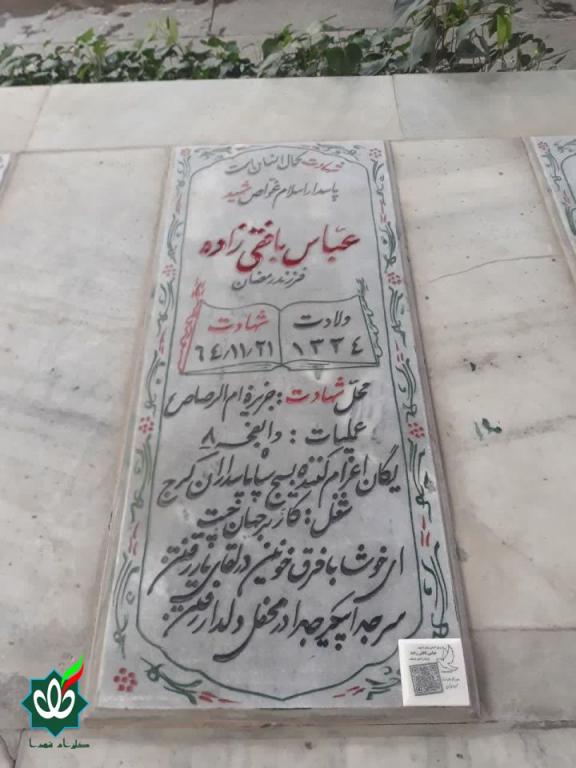 شهادت کمال انسان است
پاسدار اسلام غواص شهید
عباس بافقی زاده
فرزند رمضان
ولادت
۱۳۳۴
شهادت
۶۴/۱۱/۲۱
محل شهادت : جزیره ام الرصاص
عملیات : والفجر ۸
یگان اعزام کننده بسیج سپاه پاسداران کرج
شغل : کارگر جهان چیت
ای خوشا با فرق خونین در لقای یار رفتن
سر جدا پیکر جدا در محفل دلدار رفتن
عباس بافقی زاده
گلزار شهدا